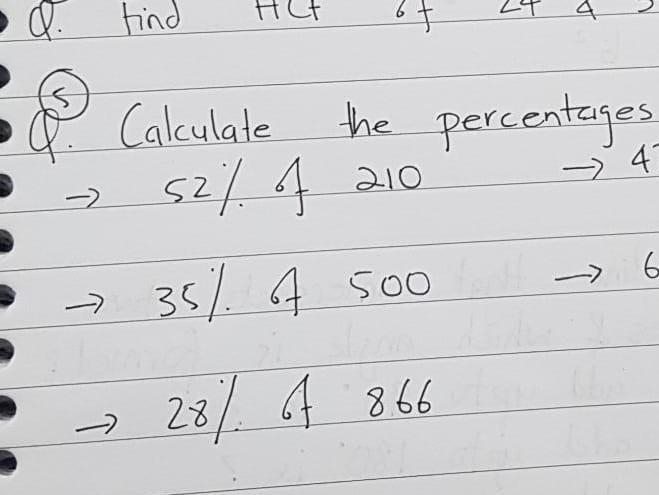 Q. find HCF of 24 &
5
Q. Calculate the percentages
→ 52% of 210 → 4
→ 35% of 500 → 6
→ 28% of 866